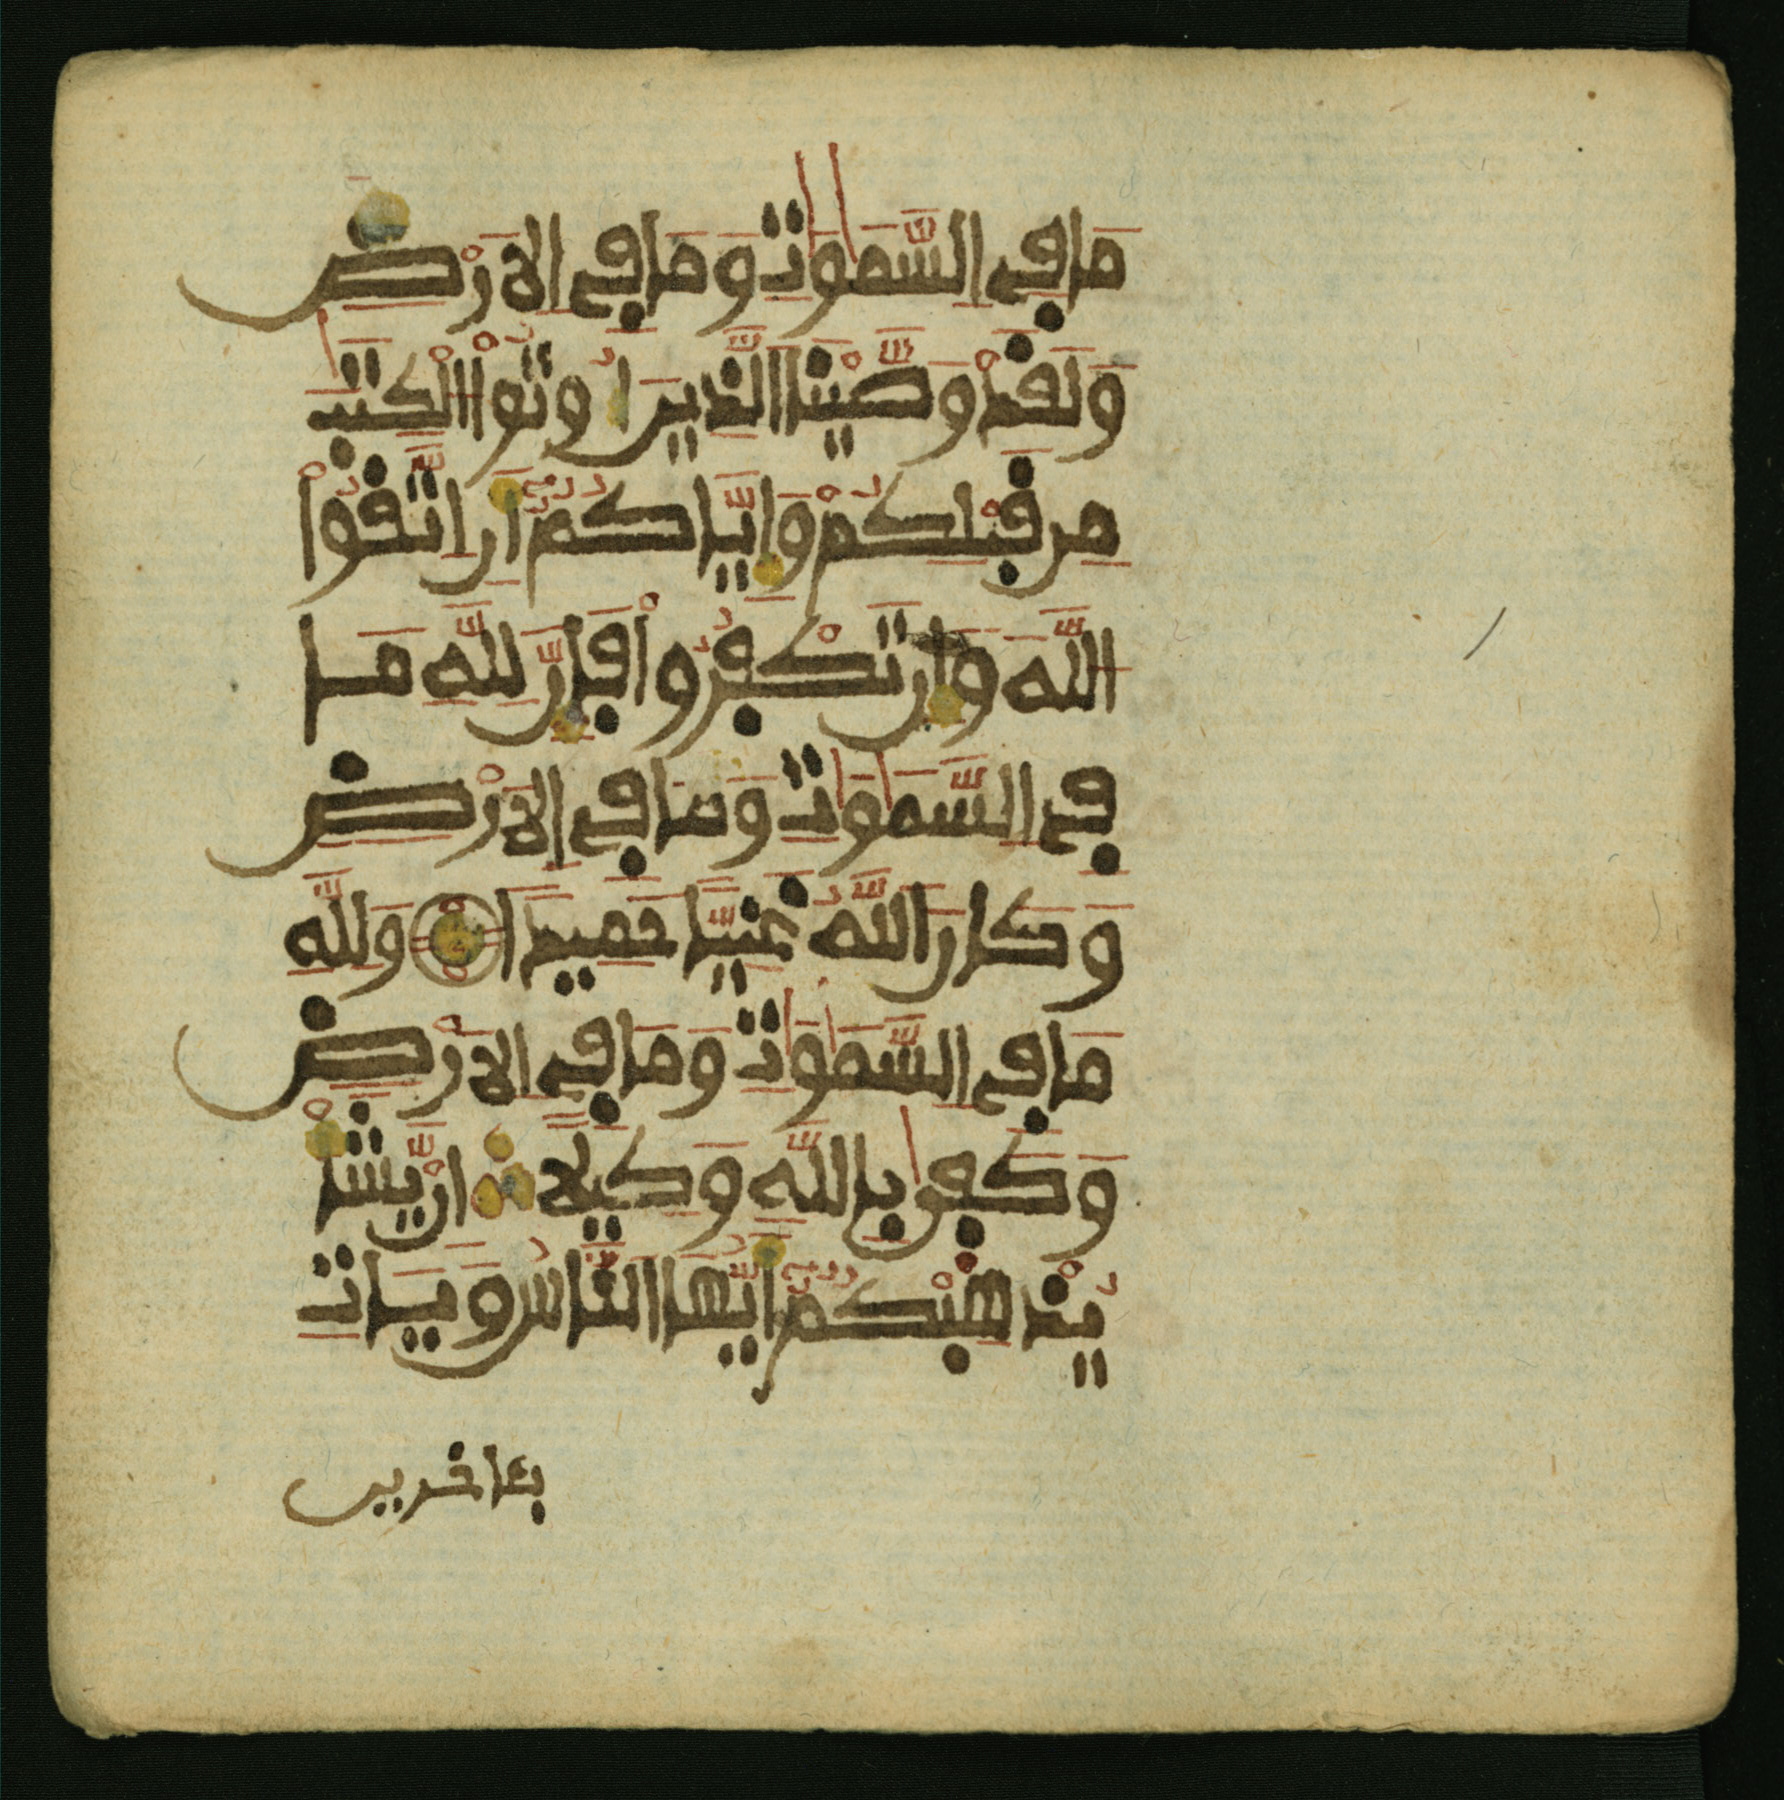 مَا فِے اِ۬لسَّمَٰوَٰتِ وَمَا فِے اِ۬لَارْضِ
وَلَقَدْ وَصَّيْنَا اَ۬لذِينَ أُوتُواْ اُ۬لْكِتَٰبَ
مِن قَبْلِكُمْ وَإِيَّاكُمُۥٓ أَنِ اِ۪تَّقُواْ
اُ۬للَّهَ وَإِن تَكْفُرُواْ فَإِنَّ لِلهِ مَا
فِے اِ۬لسَّمَٰوَٰتِ وَمَا فِے اِ۬لَارْضِ
وَكَانَ اَ۬للَّهُ غَنِيّاً حَمِيداً وَلِلهِ
مَا فِے اِ۬لسَّمَٰوَٰتِ وَمَا فِے اِ۬لَارْضِ
وَكَفَىٰ بِاللَّهِ وَكِيلًا إِنْ يَّشَأْ
يُذْهِبْكُمُۥٓ أَيُّهَا اَ۬لنَّاسُ وَيَاتِ
بِـَٔاخَرِينَ